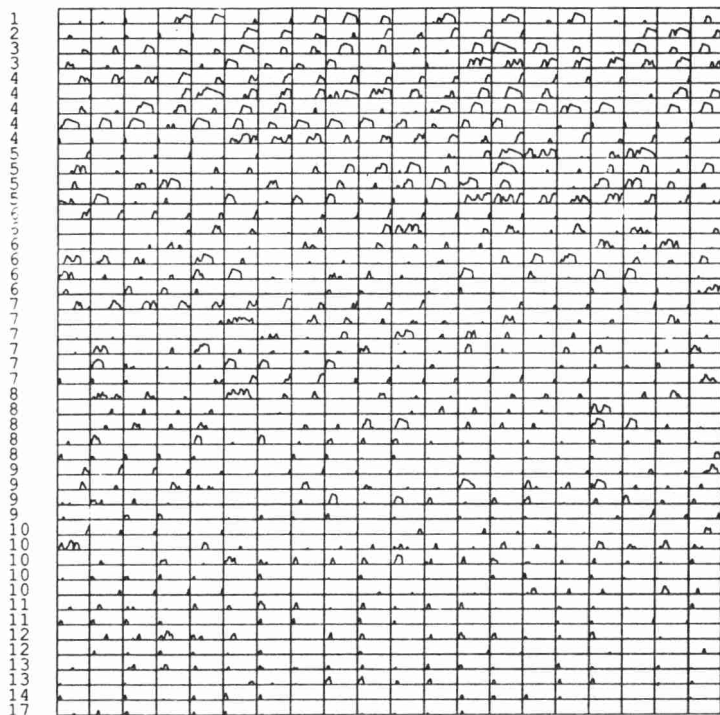 1
2
3
3
4
4
4
4
4
5
5
5
5
6
6
6
6
7
7
7
7
7
7
8
8
8
8
8
9
9
9
9
10
10
10
10
10
11
11
12
12
13
13
14
17